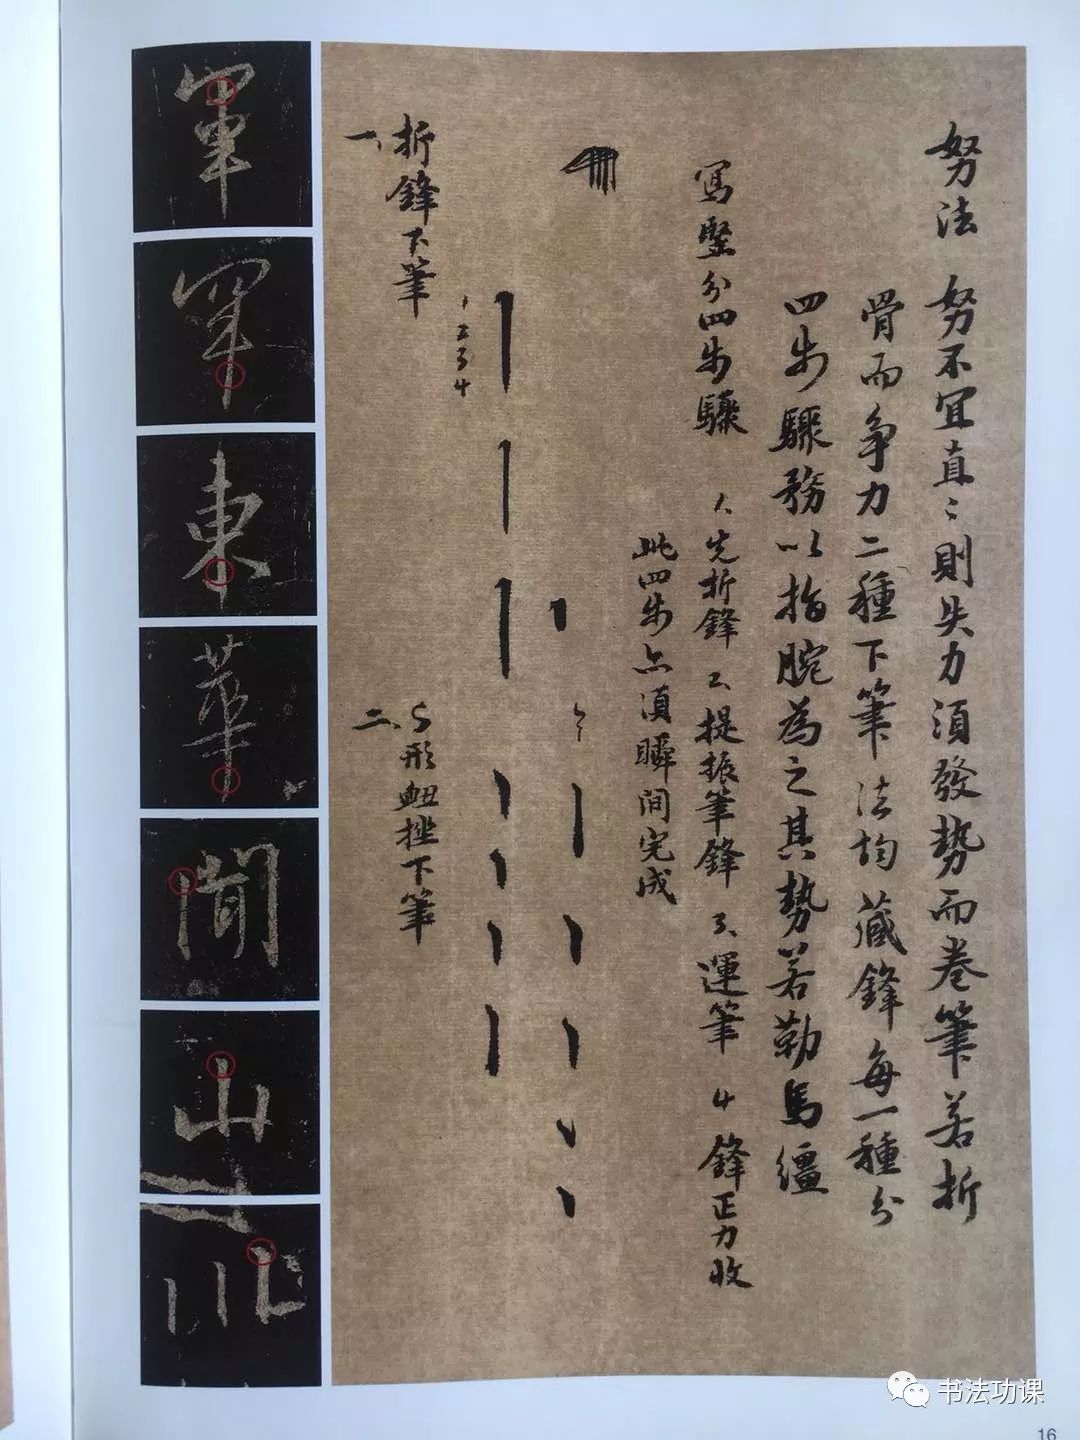 努法 努不宜直〻則失力須發勢而卷筆若折
骨而争力二種下筆法均藏鋒每一種分
四步驟務以指腕為之其勢若勒馬繮
寫竪分四步驟 1、先折鋒 2、提振筆鋒 3、運筆 4 鋒正力收
此四步亦須瞬間完成
1 2 3 4
折鋒下筆
一、
S形衄挫下筆
二、
軍
軍
東
華
間
山
川
书法功课
16